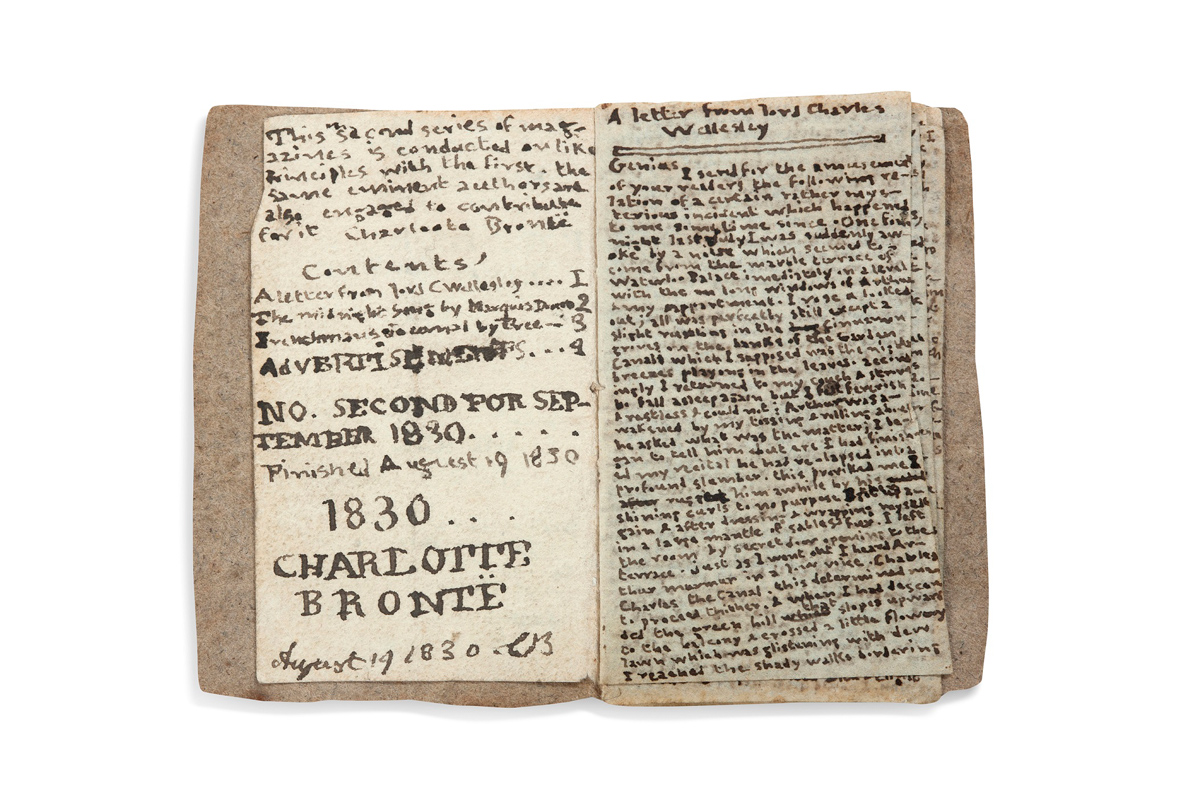 This Second series of mag-
azines is conducted on like
principles with the first. the
same eminent authors are
also engaged to contribute
for it Charlotte Brontë
Contents
A letter from lord C Wellesley .... 1
The midnight Song by Marquis Douro 2
Frenchman's Journal by Tree — 3
ADVERTISEMENTS... 4
NO. SECOND FOR SEP-
TEMBER 1830. . . . . .
Finished August 19 1830
1830 . . .
CHARLOTTE
BRONTË
August 19 1830 CB
A letter from lord Charles
Wellesley
Genius I send for the amusement
of your readers the following re-
lation of a certain rather mys-
terious incident which happened
to me sometime since. One fine
night last July I was suddenly aw-
oke by a noise which seemed to
come from the marble terrace of
Waterloo Palace imediately on a level
with the long windows of Arthur
& my appartment. I rose & looked
out; all was perfectly still except a
slight rustling in the
groves on the banks of the Garden
Canals which I supposed was the
breezes playing the leaves. accord
ingly I returned to my couch & strove
to fall asleep again but I felt feverish
& restless & could not: Arthur was a-
wakened by my tossing & rolling about
he asked what was the matter; I be
gan to tell him but ere I had finish
ed my recital he had re-lapsed into
profound slumber this provoked me I
him awhile by his
shining curls to no purpose
gain & after dressing & wrapping myself
in a large mantle of sables fur. I left
the room by secret door opening to the
terrace. Just as I went out I heard Ar-
thur murmur in a low voice. Charles
Charles the Canal. this determined me
to proceed thither. & when I had descen
ded the green hill that slopes upward
to the balcony & crossed a little flowery
lawn which was glistening with dew
I reached the shady walks bordering